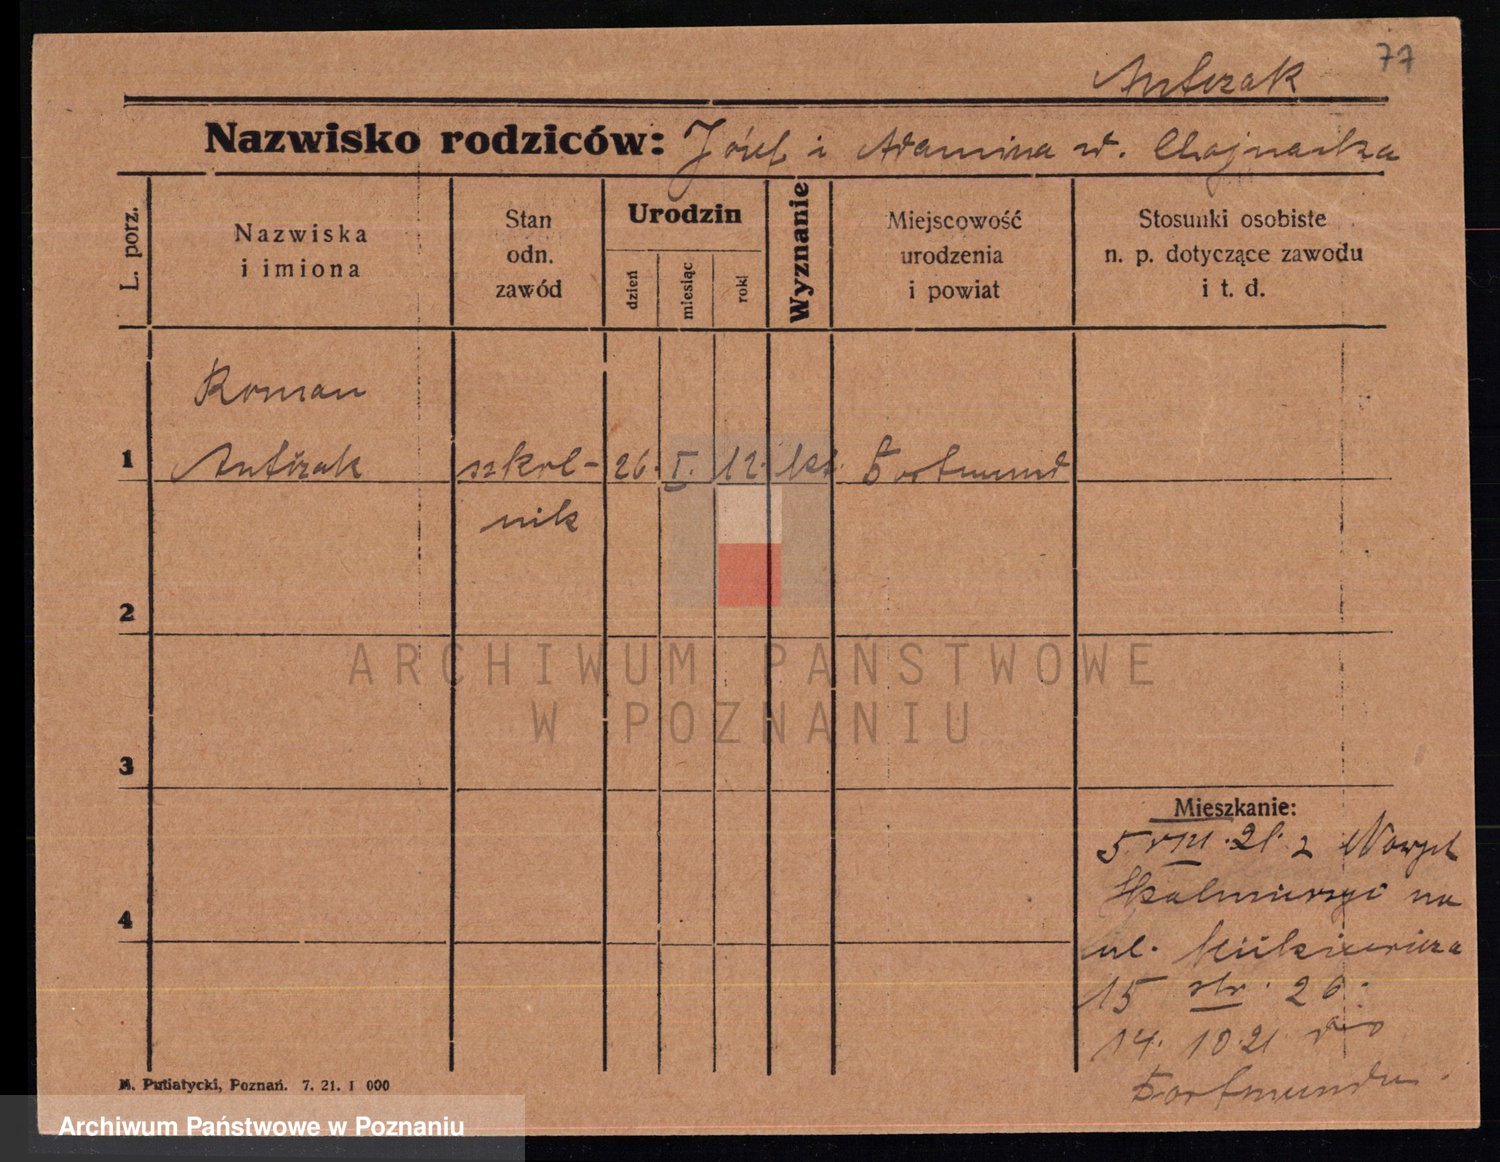 77
Antczak
Nazwisko rodziców: Józef i Adamina z d. Chojnacka
L. porz.
Nazwiska
i imiona
Stan
odn.
zawód
Urodzin
dzień
miesiąc
rok
Wyznanie
Miejscowość
urodzenia
i powiat
Stosunki osobiste
n. p. dotyczące zawodu
i t. d.
Roman
1 Antczak szkol- 26. I. 12. kat. Dortmund
nik
2
ARCHIWUM PAŃSTWOWE
W POZNANIU
3
Mieszkanie:
5 VIII. 21. z Nowych
Skalmierzyc na
ul. Mickiewicza
15 str. 26.
4
14. 10. 21 do
Dortmundu.
M. Putiatycki, Poznań. 7. 21. 1 000
Archiwum Państwowe w Poznaniu